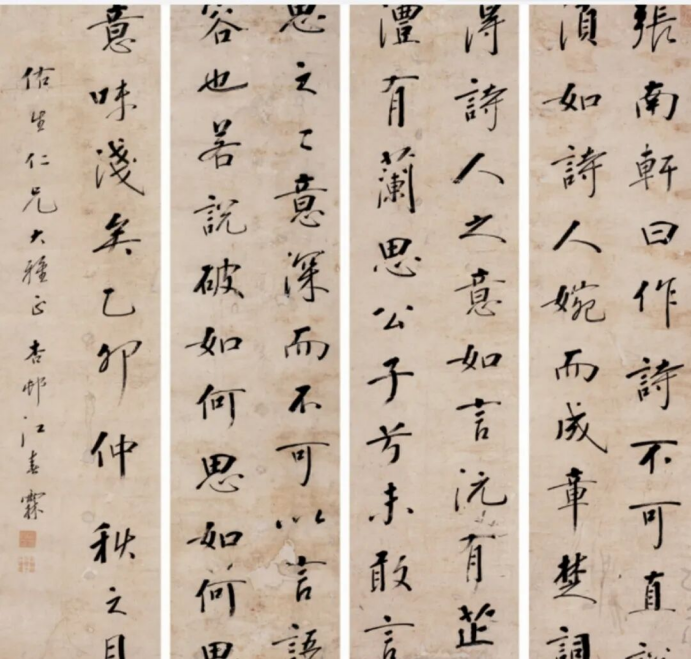 張南軒曰作詩不可直說
須如詩人婉而成章楚詞
得詩人之意如言沅有芷
澧有蘭思公子兮未敢言
思之之意深而不可以言語
容也若說破如何思如何思
意味淺矣乙卯仲秋之月
佑生仁兄大雅正 杏邨江春霖